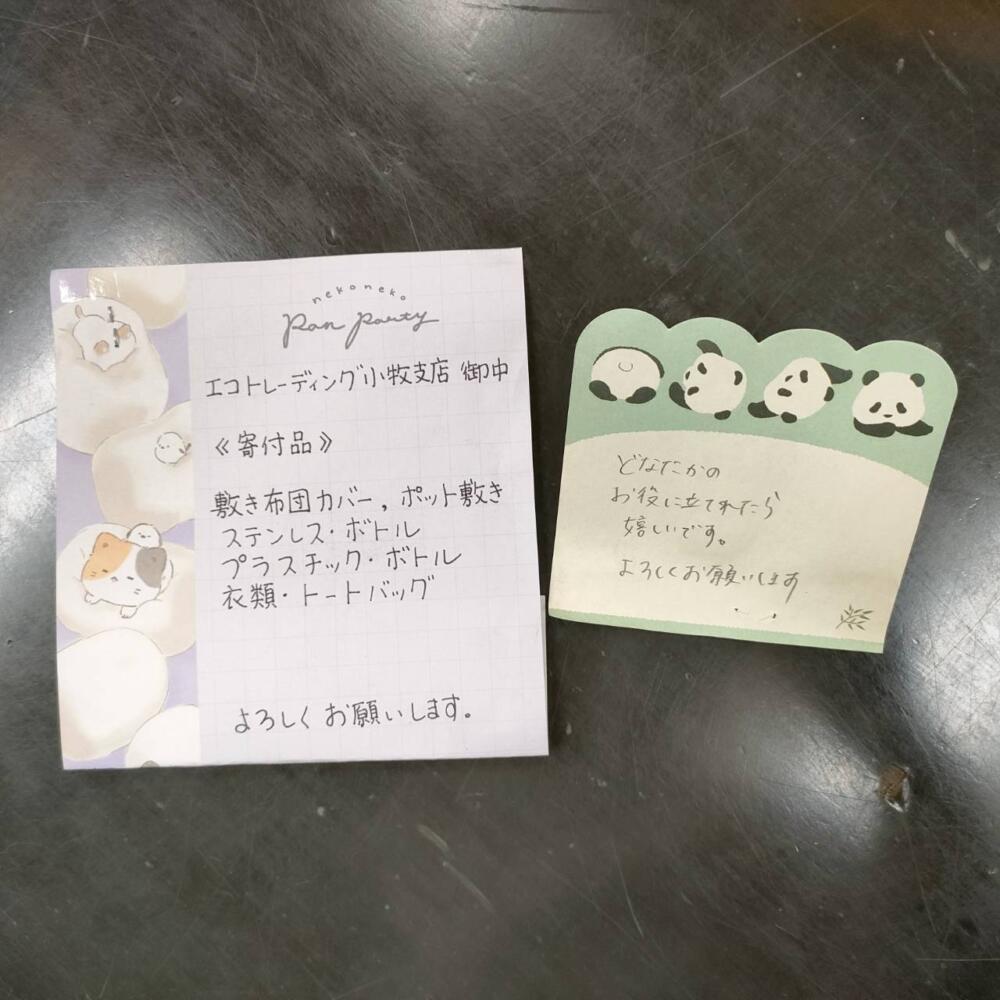 nekoneko
Pan Party
エコトレーディング小牧支店 御中
《寄付品》
敷き布団カバー, ポット敷き
ステンレス・ボトル
プラスチック・ボトル
衣類・トートバッグ
よろしくお願いします。
どなたかの
お役に立てれたら
嬉しいです。
よろしくお願いします